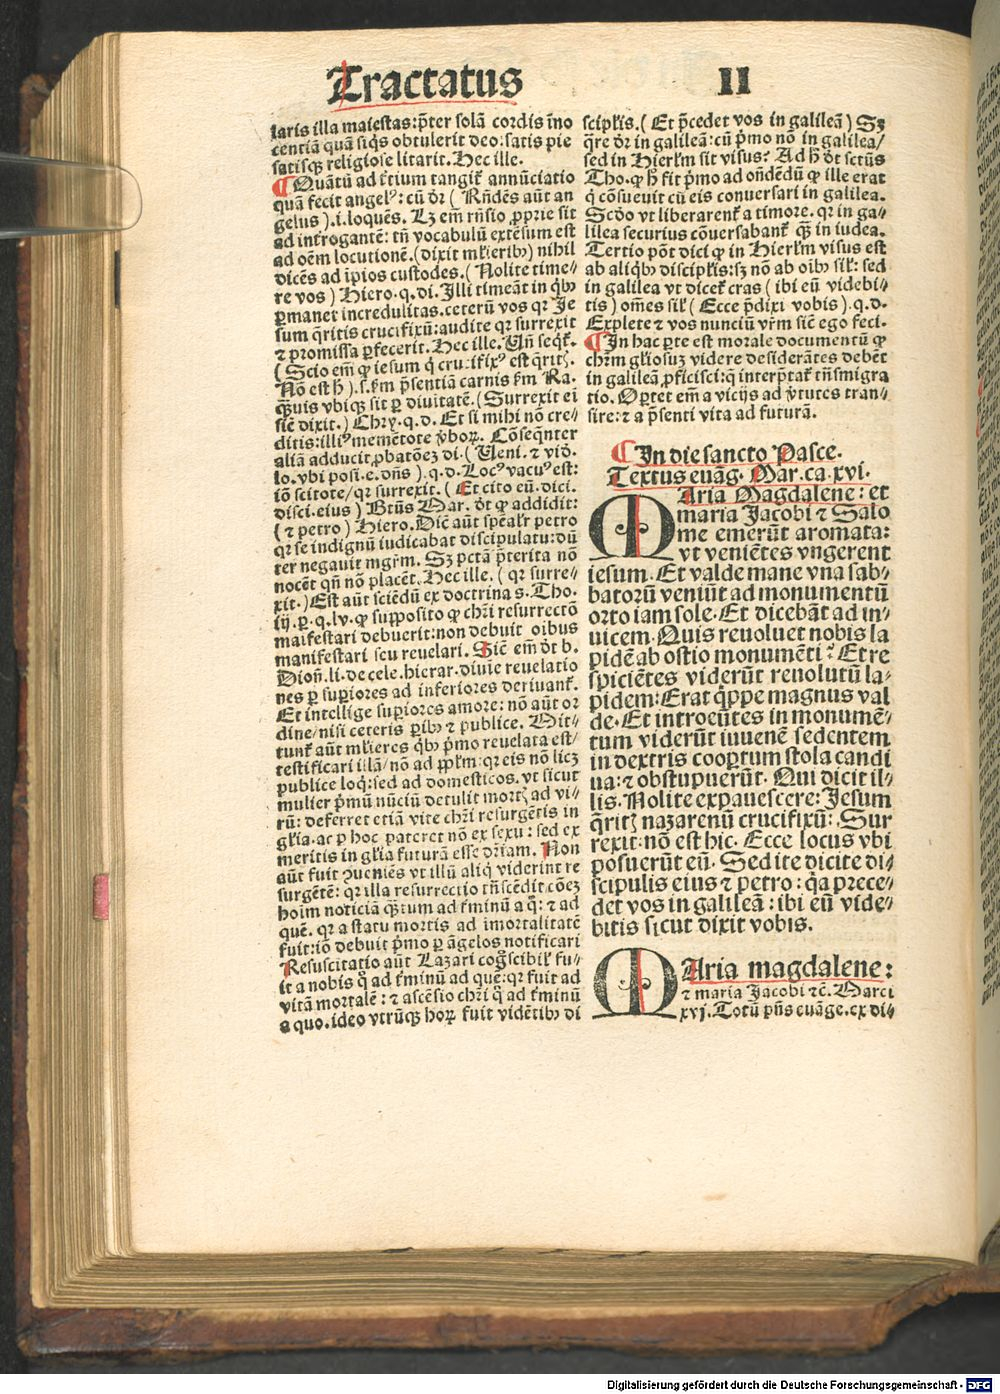 Tractatus II
laris illa maiestas: p̃ter solã cordis ĩno
centiã quã siq̃s obtulerit deo: satis pie
satisq̃ religiose litarit. Hec ille.
¶ Quãtũ ad t̃tium tangit᷒ annũciatio
quã fecit angelꝰ: cũ dr̃ ( Rñdẽs aũt an
gelus ) .i. loquẽs. Lz em̃ rñsio ꝓprie sit
ad int̃rogantẽ: tñ vocabulũ extẽsum est
ad oẽm locutionẽ. (dixit ml̃ieribꝫ) nihil
dicẽs ad ip̃os custodes. ( Nolite time⸗
re vos ) Hiero. q. di. Illi timeãt in q̃bꝫ
ꝑmanet incredulitas. ceterũ vos qꝛ Je
sum q̃ritis crucifixũ: audite qꝛ surrexit
⁊ promissa ꝑfecerit. Hec ille. Uñ seq̃t᷒.
( Scio em̃ ꝙ iesum q̃ crucifixꝰ est q̃rit᷒.
Nõ est h̃ ) .s. ẜm p̃sentiã carnis ẜm Ra.
q̃uis vbiqꝫ sit ꝑ diuitatẽ. (Surrexit ei
sic̃ dixit.) Chrẏ. q. d. Et si mihi nõ cre⸗
ditis: illiꝰ memẽtote v̾boꝝ. Cõseq̃nter
aliã adducit ꝓbatõeꝫ di. ( Ueni. ⁊ vid̾.
lo. vbi posi. e. dñs ) .q. d. Locꝰ vacuꝰ est:
iõ scitote/ qꝛ surrexit. ( Et cito eũ. dici.
disci. eius ) Btũs Mar. d̾t ꝙ addidit:
( ⁊ petro ) Hiero. Sic̃ aũt spẽalr̃ petro
qꝛ se indignũ iudicabat discipulatu: dũ
ter negauit mgr̃m. Sꝫ pctã p̃terita nõ
nocẽt qñ nõ placẽt. Hec ille. ( qꝛ surre⸗
xit. ) Est aũt sciẽdũ ex doctrina s. Tho.
iij. p. q. lv. ꝙ supposito ꝙ chr̃i resurrectõ
maifestari debuerit: non debuit oibus
manifestari seu reuelari. Sic̃ em̃ d̾t b.
Dion̾. li. de cele. hierar. diuie reuelatio
nes ꝑ supiores ad inferiores deriuant᷒.
Et intellige supiores amore: nõ aũt or
dine/ nisi ceteris ꝑibꝫ ⁊ publice. Mit⸗
tunt᷒ aũt ml̃ieres q̃bꝫ p̃mo reuelata est/
testificari illã/ nõ ad ppl̃m: qꝛ eis nõ licꝫ
publice loq̃: sed ad domesticos. vt sicut
mulier p̃mũ nũciũ detulit mort᷒ ad vi⸗
rũ: deferret etiã vite chr̃i resurgẽtis in
gl̃ia. ac ꝑ hoc pateret nõ ex sexu: sed ex
meritis in gl̃ia futurã esse dr̃iam. Non
aũt fuit ꝯueniẽs vt illũ aliq̃ viderint re
surgẽtẽ: qꝛ illa resurrectio tñscẽdit cõeꝫ
hoim noticiã q̃tum ad t̾minũ a q̃: ⁊ ad
quẽ. qꝛ a statu mortis ad imortalitatẽ
fuit: iõ debuit p̃mo ꝑ ãgelos notificari
Resuscitatio aũt Lazari cog̃scibil᷒ fu⸗
it a nobis q̃ ad t̾minũ ad quẽ: qꝛ fuit ad
vitã mortalẽ: ⁊ ascẽsio chr̃i q̃ ad t̾minũ
a quo. ideo vtrũqꝫ hoꝝ fuit vidẽtibꝫ di
scipl̃is. ( Et p̃cedet vos in galileã ) Sꝫ
q̃re dr̃ in galileã: cũ p̃mo nõ in galilea/
sed in Hierl̃m sit visus? Ad h̃ d̾t sctũs
Tho. ꝙ h̃ fit p̃mo ad oñdẽdũ ꝙ ille erat
q̃ cõsueuit cũ eis conuersari in galilea.
Scd̾o vt liberarent᷒ a timore. qꝛ in ga⸗
lilea securius cõuersabant᷒ q̃ in iudea.
Tertio põt dici ꝙ in Hierl̃m visus est
ab aliq̃bꝫ discipl̃is: sꝫ nõ ab oibꝫ sil᷒: sed
in galilea vt dicet᷒ cras ( ibi eũ videbi⸗
tis ) om̃es sil᷒ ( Ecce p̃dixi vobis ) .q. d.
Explete ⁊ vos nunciũ vr̃m sic̃ ego feci.
¶ In hac ꝑte est morale documentũ ꝙ
chr̃m gl̃iosuꝫ videre desiderãtes debẽt
in galileã ꝓficisci: q̃ interp̃tat᷒ tñsmigra
tio. Oꝑtet em̃ a vicijs ad v̾tutes tran⸗
sire: ⁊ a p̃senti vita ad futurã.
¶ In die sancto Pasce.
Textus euãg. Mar. ca. xvi.
MAria Magdalene: et
maria Jacobi ⁊ Salo
me emerũt aromata:
vt veniẽtes vngerent
iesum. Et valde mane vna sab⸗
batorũ veniũt ad monumentũ
orto iam sole. Et dicebãt ad in⸗
uicem. Quis reuoluet nobis la
pidẽ ab ostio monumẽti? Et re
spiciẽtes viderũt reuolutũ la⸗
pidem: Erat q̃ppe magnus val
de. Et introeũtes in monumẽ⸗
tum viderũt iuuenẽ sedentem
in dextris coopertum stola candi
ua: ⁊ obstupuerũt. Qui dicit il⸗
lis. Nolite expauescere: Jesum
q̃rit᷒ nazarenũ crucifixũ: Sur
rexit: nõ est hic. Ecce locus vbi
posuerũt eũ. Sed ite dicite di⸗
scipulis eius ⁊ petro: q̃a prece⸗
det vos in galileã: ibi eũ vide⸗
bitis sicut dixit vobis.
MAria magdalene:
⁊ maria Jacobi ⁊c̃. Marci
xvj. Totũ p̃ñs euãge. ex di⸗
Digitalisierung gefördert durch die Deutsche Forschungsgemeinschaft - DFG